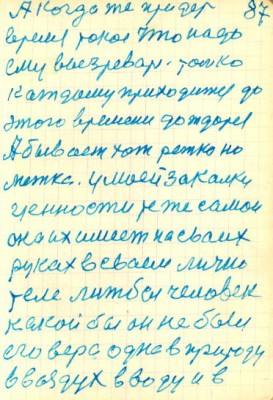 А когда же придет 87
время такое что надо
ему вызревать. только
каждому приходится до
этого времени дождатся
А бывает хотя редко но
метко. у моей закалки
ценности те же самои
она их имеет на своих
руках в своем лично
теле лижбы человек
какой бы он не был
его вера одна в природу
в воздух в воду и в